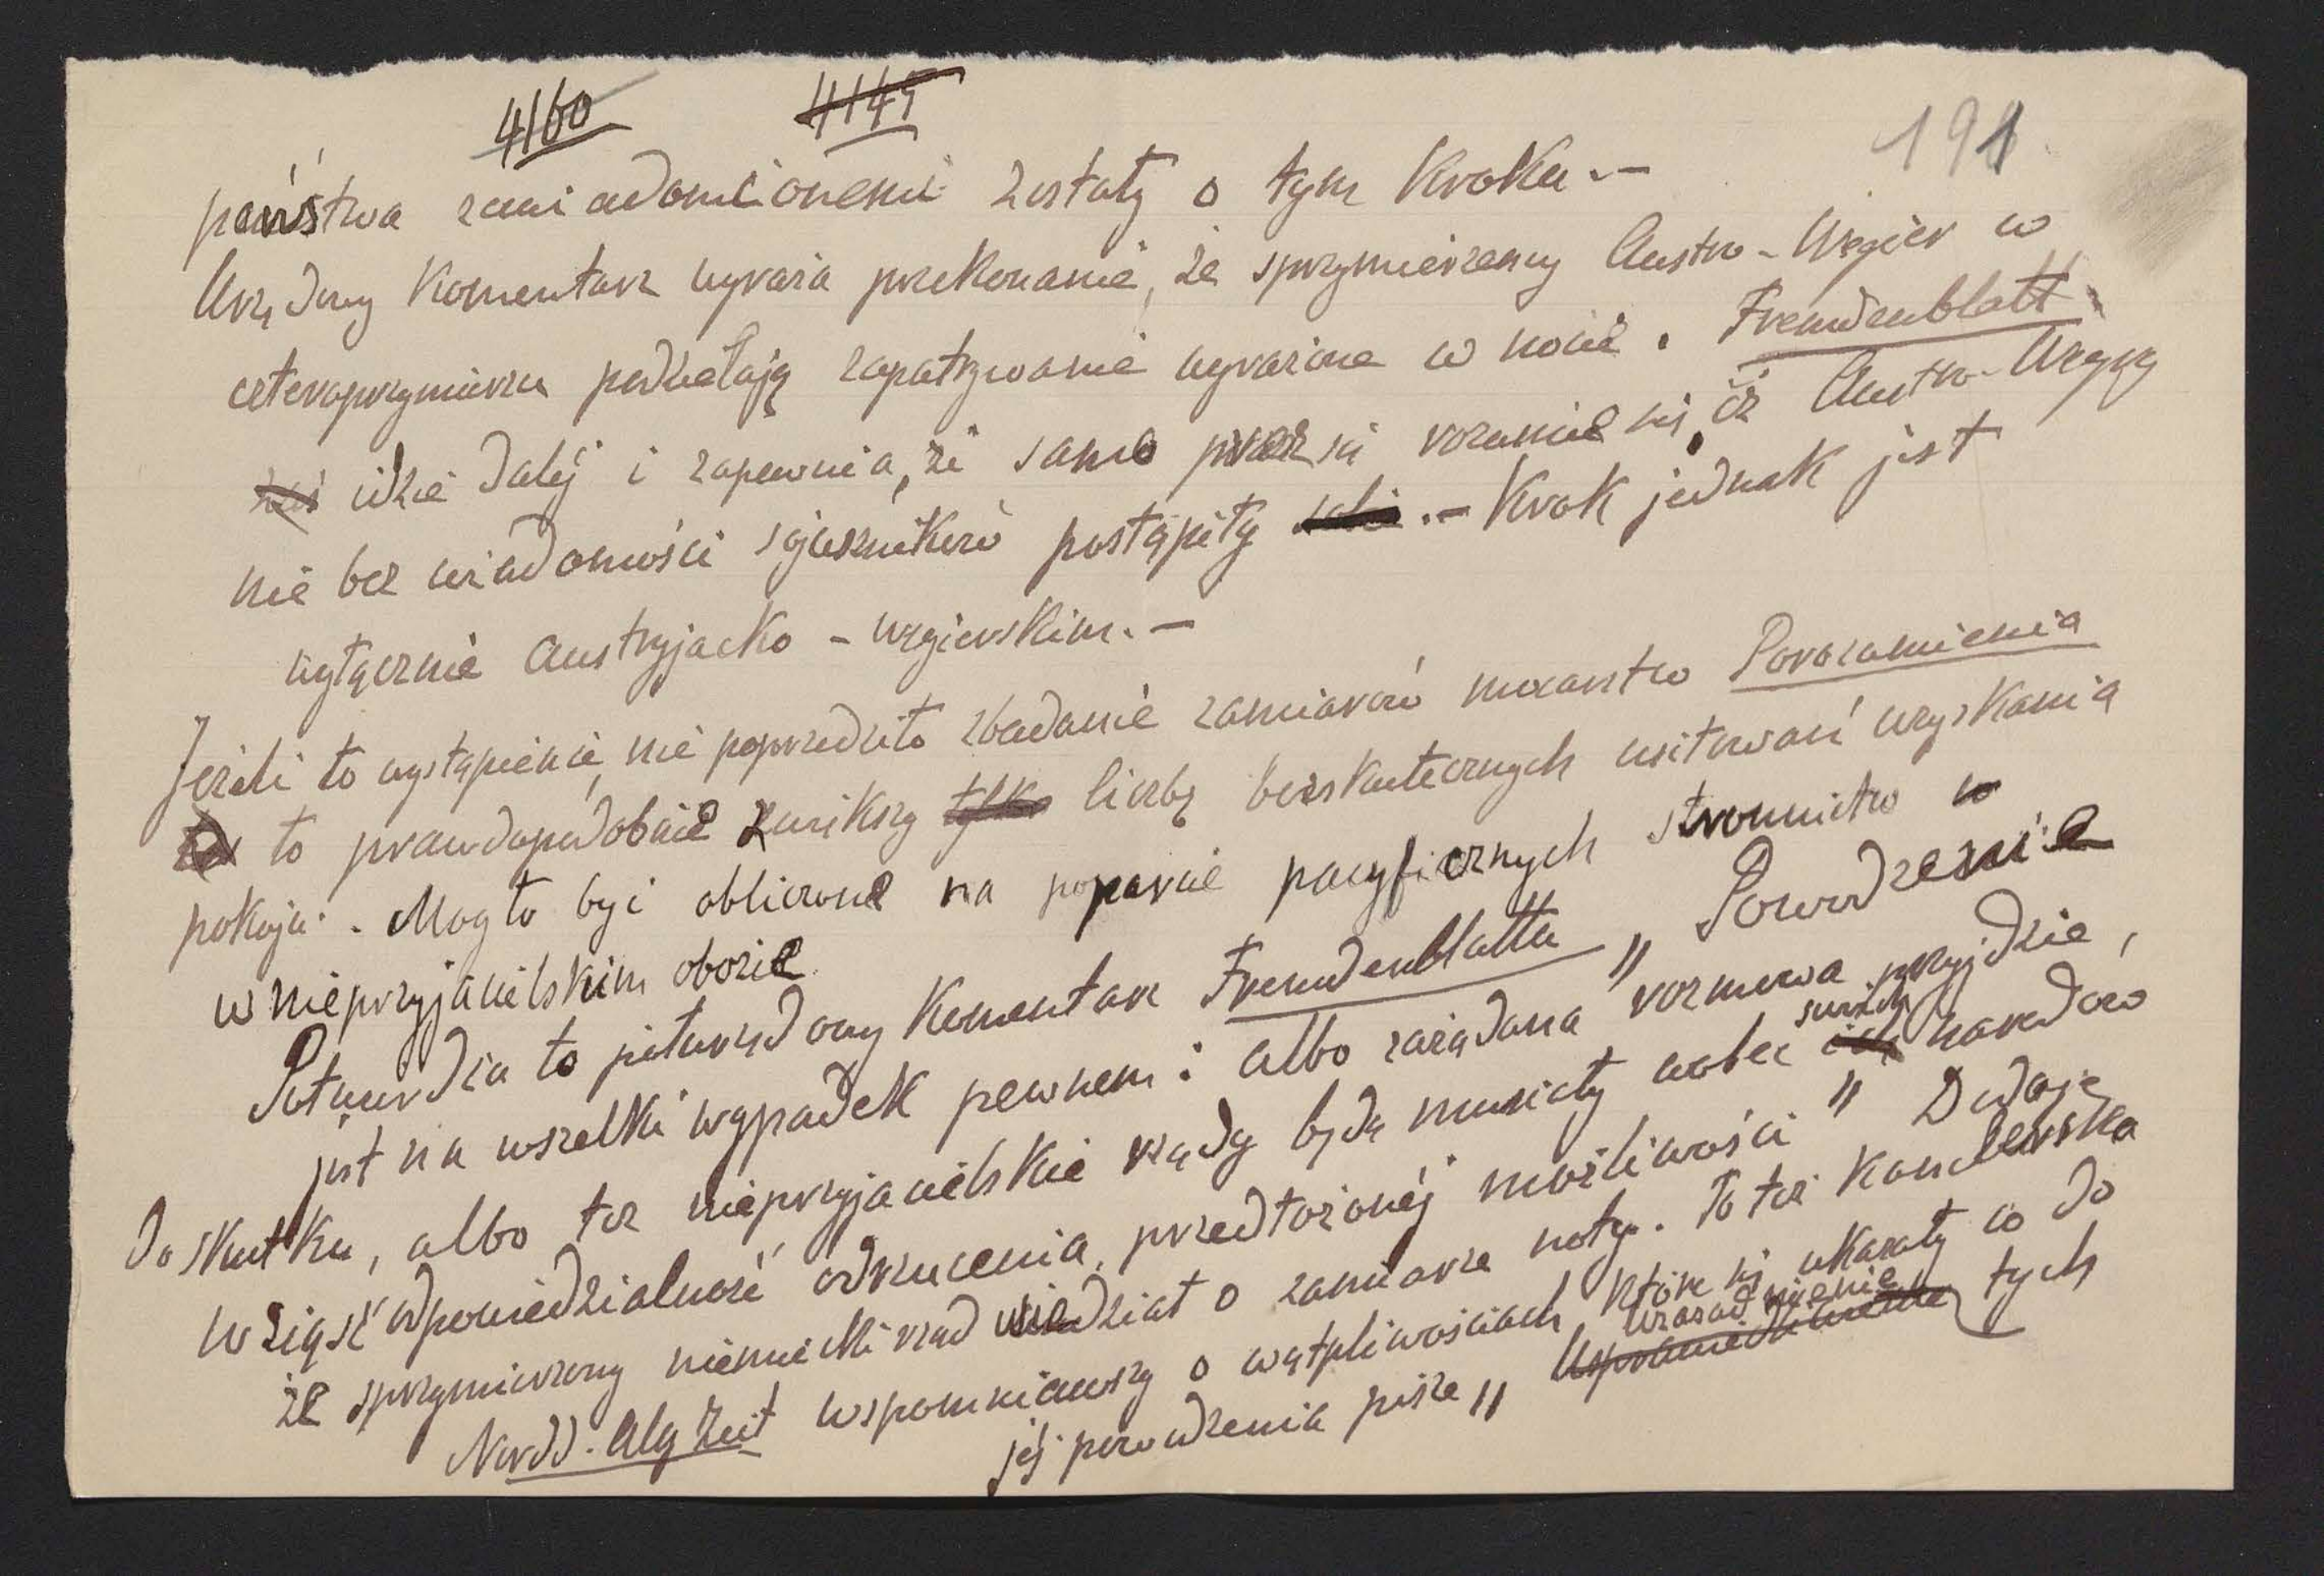 4160 4145
191
państwa zawiadomionemi zostały o tym kroku.—
Urzędowy komentarz wyraża przekonanie, że sprzymierzeńcy Austro-Węgier w
czteroprzymierzu podzielają zapatrywanie wyrażone w nocie. Fremdenblatt
idzie dalej i zapewnia, że samo przez się rozumie się, iż Austro-Węgry
nie bez wiadomości sojuszników postąpiły .— Krok jednak jest
wyłącznie austryjacko-węgierskim.—
Jeżeli to wystąpienie, nie poprzedziło zbadanie zamiarów mocarstw Porozumienia
to prawdopodobnie zwiększy tylko liczbę bezskutecznych usiłowań uzyskania
pokoju. Mogło być obliczone na poparcie pacyficznych stronnictw w
w nieprzyjacielskim obozie
Potwierdza to półurzędowy komentarz Fremdenblatta „Powodzenie
jest na wszelki wypadek pewnem: albo zażądana rozmowa przyjdzie,
do skutku, albo też nieprzyjacielskie rządy będą musiały wobec swoich narodów
wziąść odpowiedzialność odrzucenia, przedłożonej możliwości" Dodaje
że sprzymierzony niemiecki rząd wiedział o zamiarze noty. To też kanclerska
Nordd. Alg Zeit wspomniawszy o wątpliwościach, które się ukazały co do
jej powodzenia pisze „ Usprawiedliwienie uzasadnienie tych